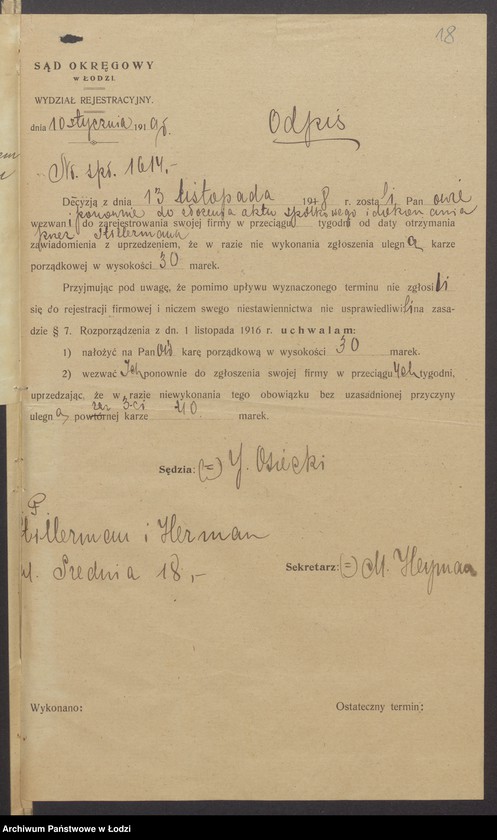 18
SĄD OKRĘGOWY
w ŁODZI.
WYDZIAŁ REJESTRACYJNY.
dnia 10 stycznia 1919 r.
Odpis
No. spr. 1614.-
Decyzją z dnia 13 listopada 1918 r. zostali Panowie
i ponownie do złożenia aktu spółkowego i dokonania
wezwani do zarejestrowania swojej firmy w przeciągu tygodni od daty otrzymania
przez Hillermana
zawiadomienia z uprzedzeniem, że w razie nie wykonania zgłoszenia ulegną karze
porządkowej w wysokości 30 marek.
Przyjmując pod uwagę, że pomimo upływu wyznaczonego terminu nie zgłosili
się do rejestracji firmowej i niczem swego niestawiennictwa nie usprawiedliwili na zasa-
dzie § 7. Rozporządzenia z dn. 1 listopada 1916 r. uchwalam:
1) nałożyć na Panów karę porządkową w wysokości 30 marek.
2) wezwać Ich ponownie do zgłoszenia swojej firmy w przeciągu tygodni,
uprzedzając, że w razie niewykonania tego obowiązku bez uzasadnionej przyczyny
ulegną powtórnej karze 40. marek.
Sędzia: (=) J. Osiecki
P.
Hillerman i Herman
ul. Średnia 18,-
Sekretarz: (=) M. Heyman
Wykonano:
Ostateczny termin:
Archiwum Państwowe w Łodzi